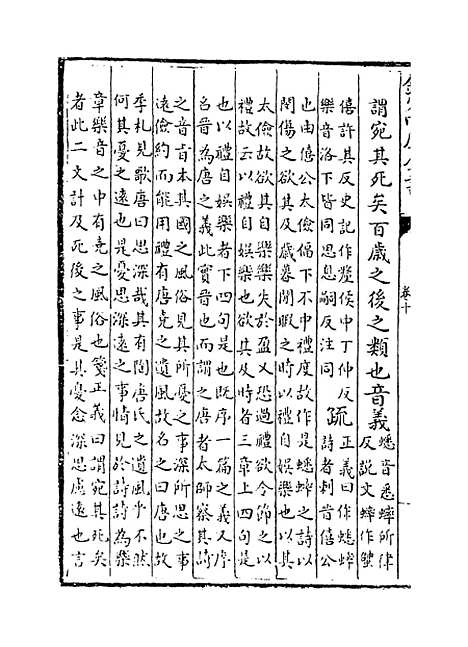 謂宛其死矣百歲之後之類也音義
蟋音悉蟀所律
反說文蟀作𧍓
僖許其反史記作釐侯中丁仲反
樂音洛下皆同思息嗣反注同
疏
正義曰作蟋蟀
詩者刺晉僖公
也由僖公太儉偪下不中禮度故作是蟋蟀之詩以
閔傷之欲其及歲暮閒暇之時以禮自娛樂也以其
太儉故欲其自樂樂失於盈又恐過禮欲令節之以
禮故云以禮自娛樂也欲其及時者三章上四句是
也以禮自娛樂者下四句是也既序一篇之義又序
名晉為唐之義此實晉也而謂之唐者太師察其詩
之音旨本其國之風俗見其所憂之事深所思之事
遠儉約而能用禮有唐堯之遺風故名之曰唐也故
季札見歌唐曰思深哉其有陶唐氏之遺風乎不然
何其憂之遠也是憂思深遠之事情見於詩詩為樂
章樂音之中有堯之風俗也箋正義曰謂宛其死矣
者此二文計及死後之事是其憂念深思慮遠也言
卷十